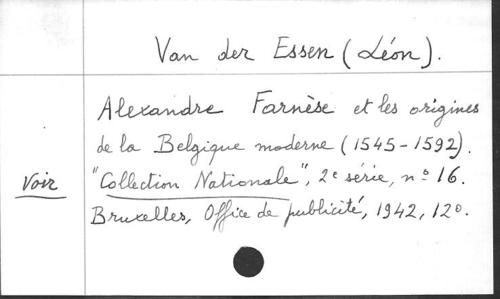 Van der Essen (Léon).
Alexandre Farnèse et les origines
de la Belgique moderne (1545-1592).
Voir "Collection Nationale", 2e série, nº 16.
Bruxelles, Office de publicité, 1942, 12º.